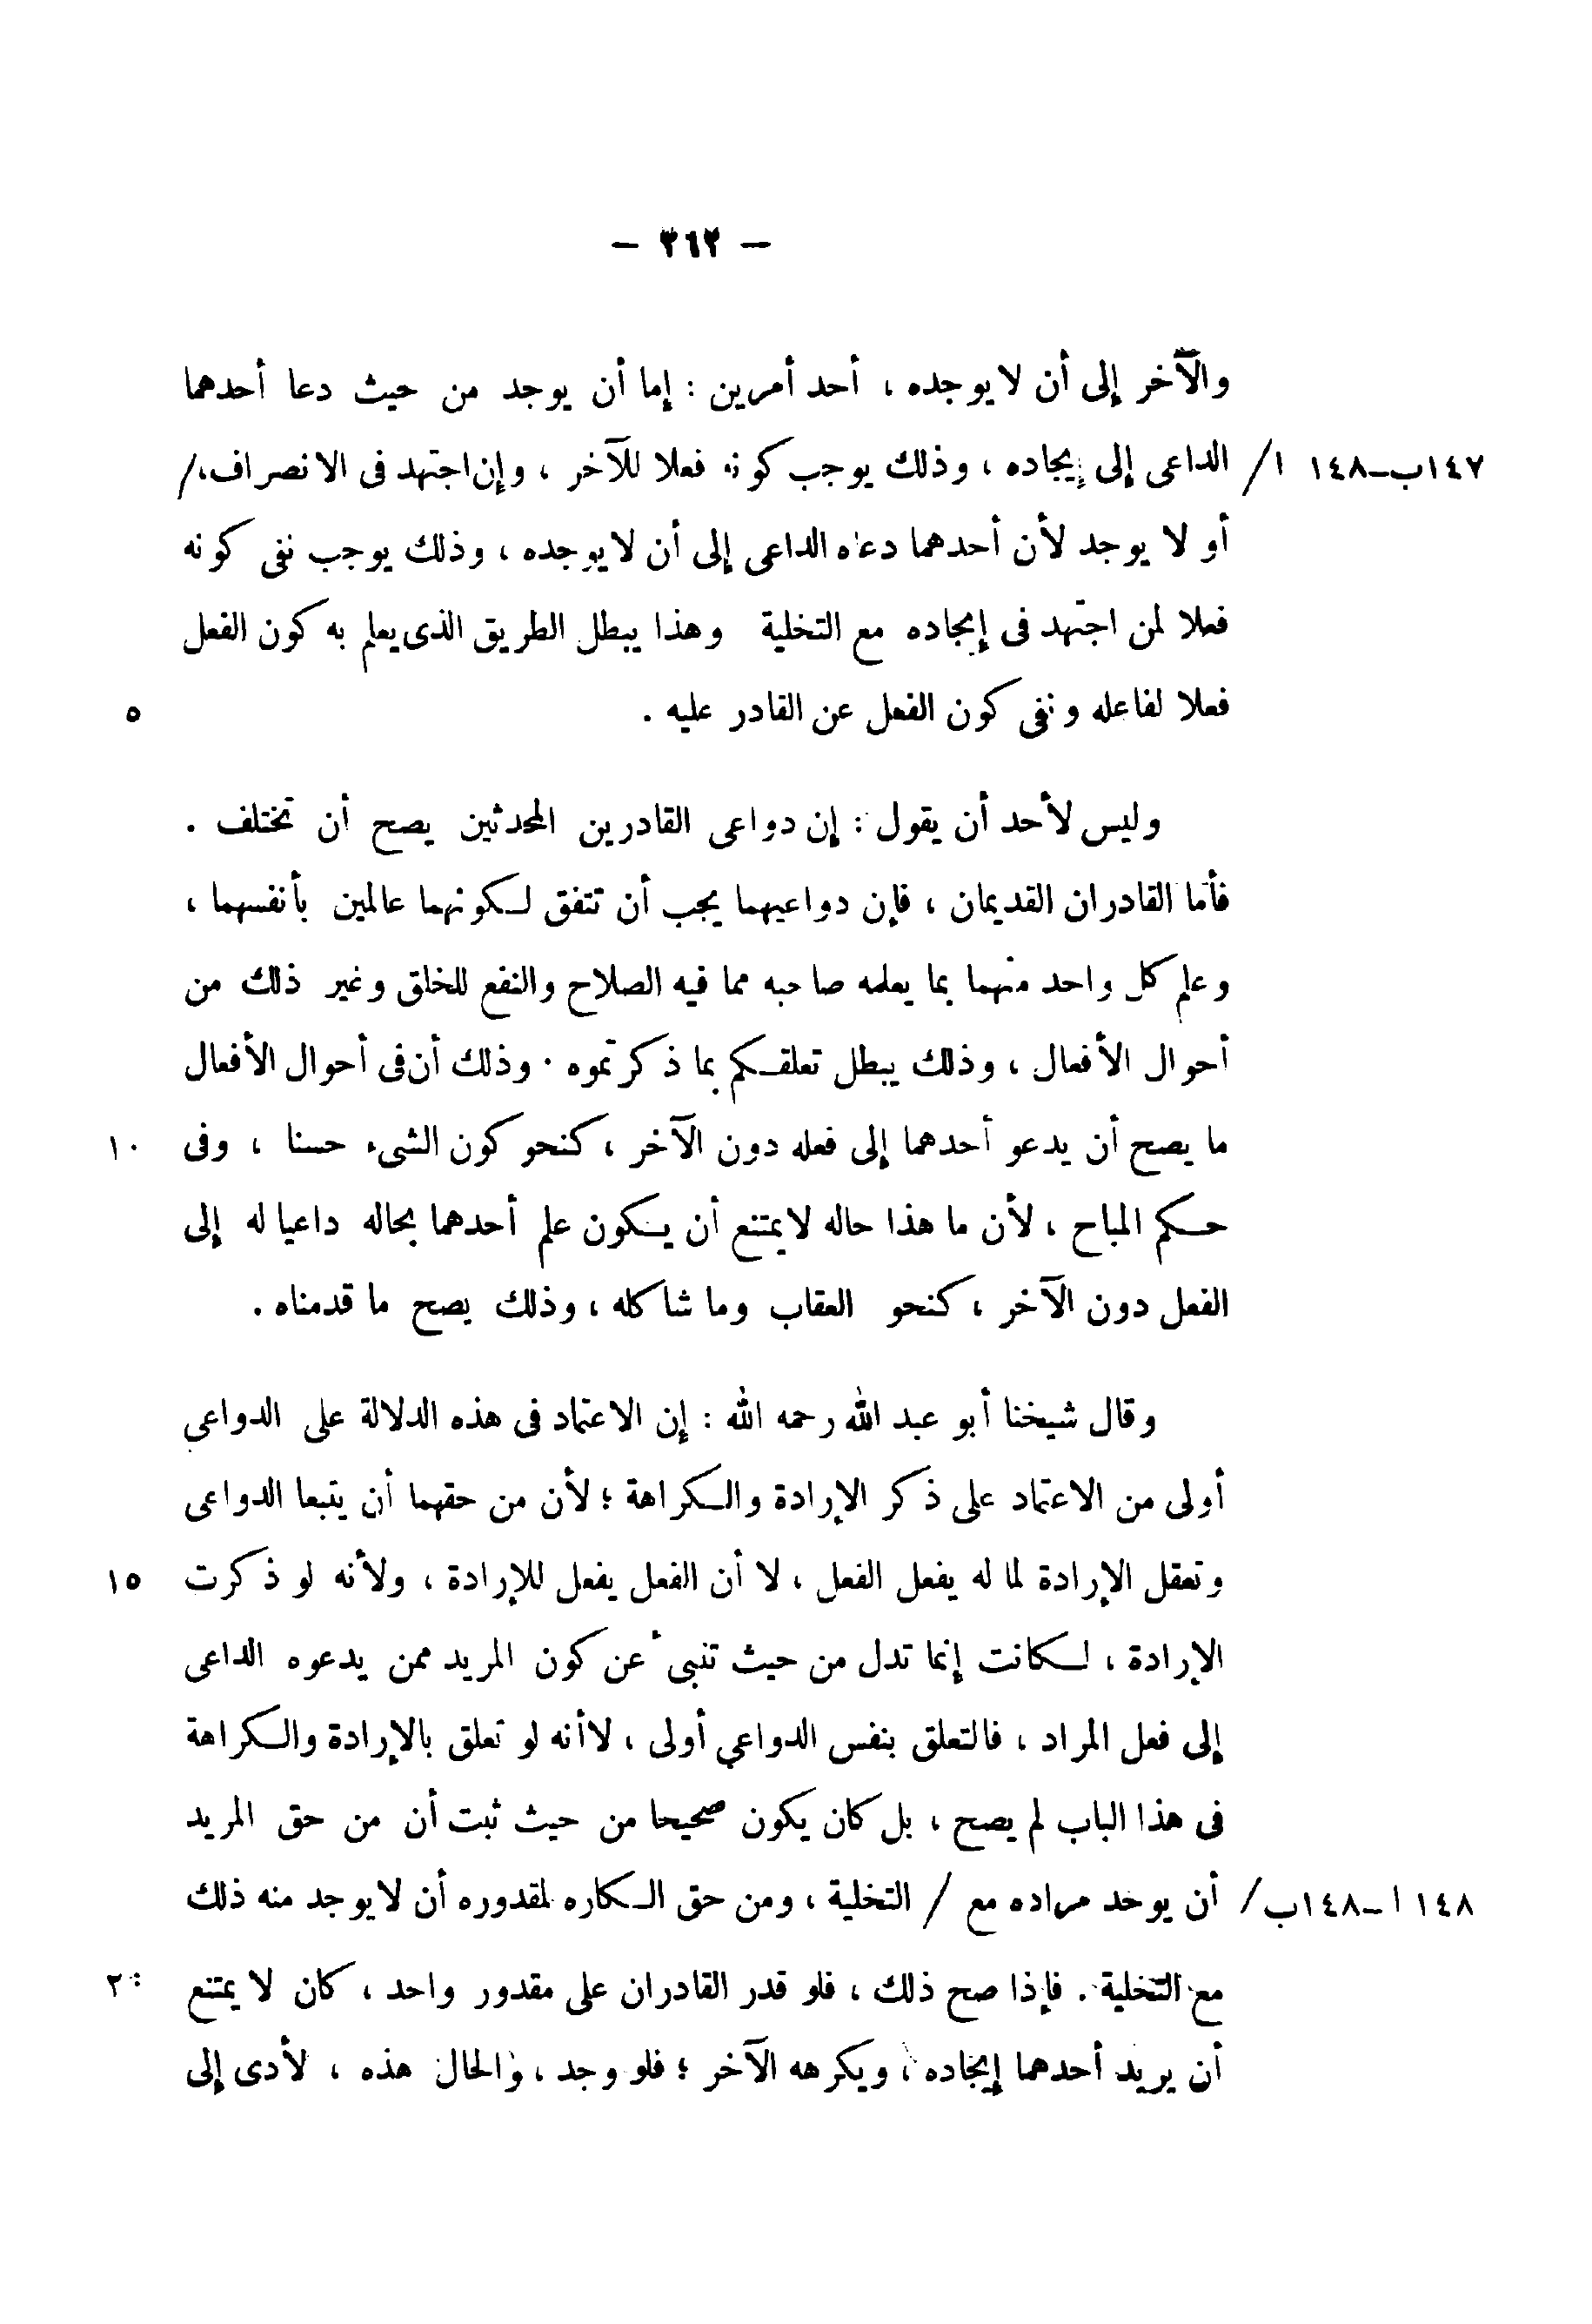 — ٣٦٢ —
والآخر إلى أن لا يوجده ، أحد أمرين : إما أن يوجد من حيث دعا أحدهما
١٤٧ب-١٤٨ ا/ الداعى إلى إيجاده ، وذلك يوجب كونه فعلا للآخر ، وإن اجتهد فى الانصراف،/
أو لا يوجد لأن أحدهما دعاه الداعى إلى أن لا يوجده ، وذلك يوجب نفى كونه
فعلا لمن اجتهد فى إيجاده مع التخلية وهذا يبطل الطريق الذى يعلم به كون الفعل
فعلا لفاعله ونفى كون الفعل عن القادر عليه . ٥
وليس لأحد أن يقول : إن دواعى القادرين المحدثين يصح أن تختلف .
فأما القادران القديمان ، فإن دواعيهما يجب أن تتفق لكونهما عالمين بأنفسهما ،
وعلم كل واحد منهما بما يعلمه صاحبه مما فيه الصلاح والنفع للخلق وغير ذلك من
أحوال الأفعال ، وذلك يبطل تعلقكم بما ذكرتموه . وذلك أن فى أحوال الأفعال
ما يصح أن يدعو أحدهما إلى فعله دون الآخر ، كنحو كون الشىء حسنا ، وفى ١٠
حكم المباح ، لأن ما هذا حاله لا يمتنع أن يكون علم أحدهما بحاله داعيا له إلى
الفعل دون الآخر ، كنحو العقاب وما شاكله ، وذلك يصح ما قدمناه .
وقال شيخنا أبو عبد الله رحمه الله : إن الاعتماد فى هذه الدلالة على الدواعى
أولى من الاعتماد على ذكر الإرادة والكراهة ؛ لأن من حقهما أن يتبعا الدواعى
وتعقل الإرادة لما له يفعل الفعل ، لا أن الفعل يفعل للإرادة ، ولأنه لو ذكرت ١٥
الإرادة ، لكانت إنما تدل من حيث تنبىء عن كون المريد ممن يدعوه الداعى
إلى فعل المراد ، فالتعلق بنفس الدواعي أولى ، لا أنه لو تعلق بالإرادة والكراهة
فى هذا الباب لم يصح ، بل كان يكون صحيحا من حيث ثبت أن من حق المريد
١٤٨ ا-١٤٨ب/ أن يوجد مراده مع / التخلية ، ومن حق الكاره لمقدوره أن لا يوجد منه ذلك
مع التخلية . فإذا صح ذلك ، فلو قدر القادران على مقدور واحد ، كان لا يمتنع ٢٠
أن يريد أحدهما إيجاده ، ويكرهه الآخر ؛ فلو وجد ، والحال هذه ، لأدى إلى